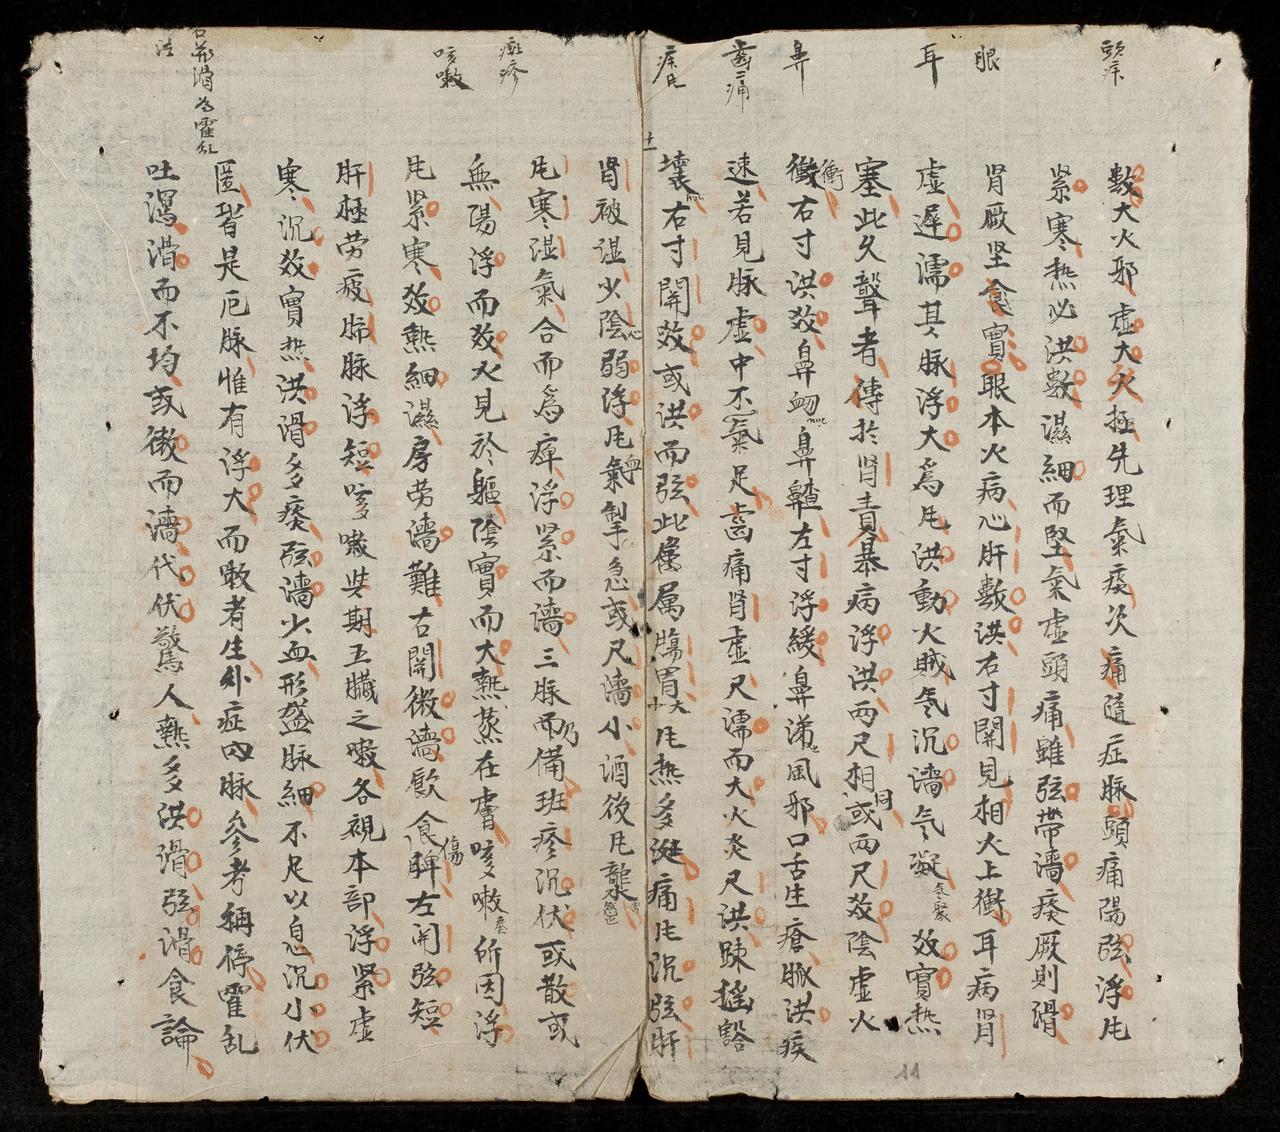 頭疼
眼
耳
鼻
齒痛
疼風
數大火邪虛大火極先理氣痰次痛隨症脈頭痛陽弦浮凡
紧寒热必洪數濕細而堅氣虛頭痛雖弦帶濇痰厥則滑
肾厥坚食實眼本火病心肝數洪右寸関見相火上衝耳病肾
虛遲濡其脈浮大為凡洪動火贼氣沉濇气凝氣聚效實热
塞此久聾者傳於肾責暴病浮洪两尺相同或两尺效陰虛火
徵衝右寸洪效鼻衂鼻齄左寸浮緩鼻涕風邪口舌生瘡脈洪疾
速若見脈虛中不氣足齒痛肾虛尺濡而大火炎尺洪踈摇豁
壞右寸関效或洪而弦此屬腸胃大凡热多涎痛凡沉弦肝
十一
斑疹
咳嗽
右并滑為霍乱
肾被湿少陰弱浮凡氣掣急或尺濇小酒後凡
凡寒湿氣合而為痺浮紧而濇三脈乃備班疹沉伏或散或
無陽浮而效火見於軀陰實而大熱蒸在膚咳嗽所因浮
凡紧寒效熱細濕房劳濇難右関微濇飲食傷脾左関弦短
肝極劳疲肺脈浮短咳嗽此期五臟之嗽各視本部浮紧虛
寒沉效實热洪滑多痰弦濇少血形盛脈細不足以息沉小伏
匿皆是厄脈惟有浮大而嗽者生外症内脈參考稱停霍乱
吐瀉滑而不均或微而濇代伏驚人熱多洪滑弦滑食論
11